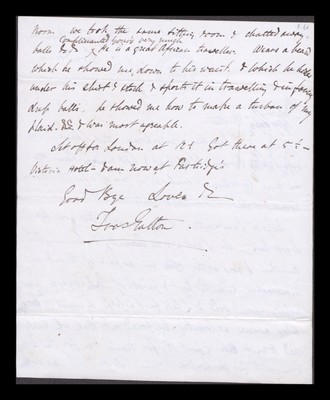 room we took the same sitting room & chatted away
Complimented yours very much
balls &c &c He is a great African traveller. Wears a beard
which he showed me, down to his waist, & which he hides
under his shirt & stock & sports it in travelling & in fancy
dress balls. he showed me how to make a turban of my
plaid. &c & was most agreeable.
Set off for London at Got there at 5½ –
Victoria Hotel – dam now at Partridge's
Good Bye Loves &c
Fras Galton.